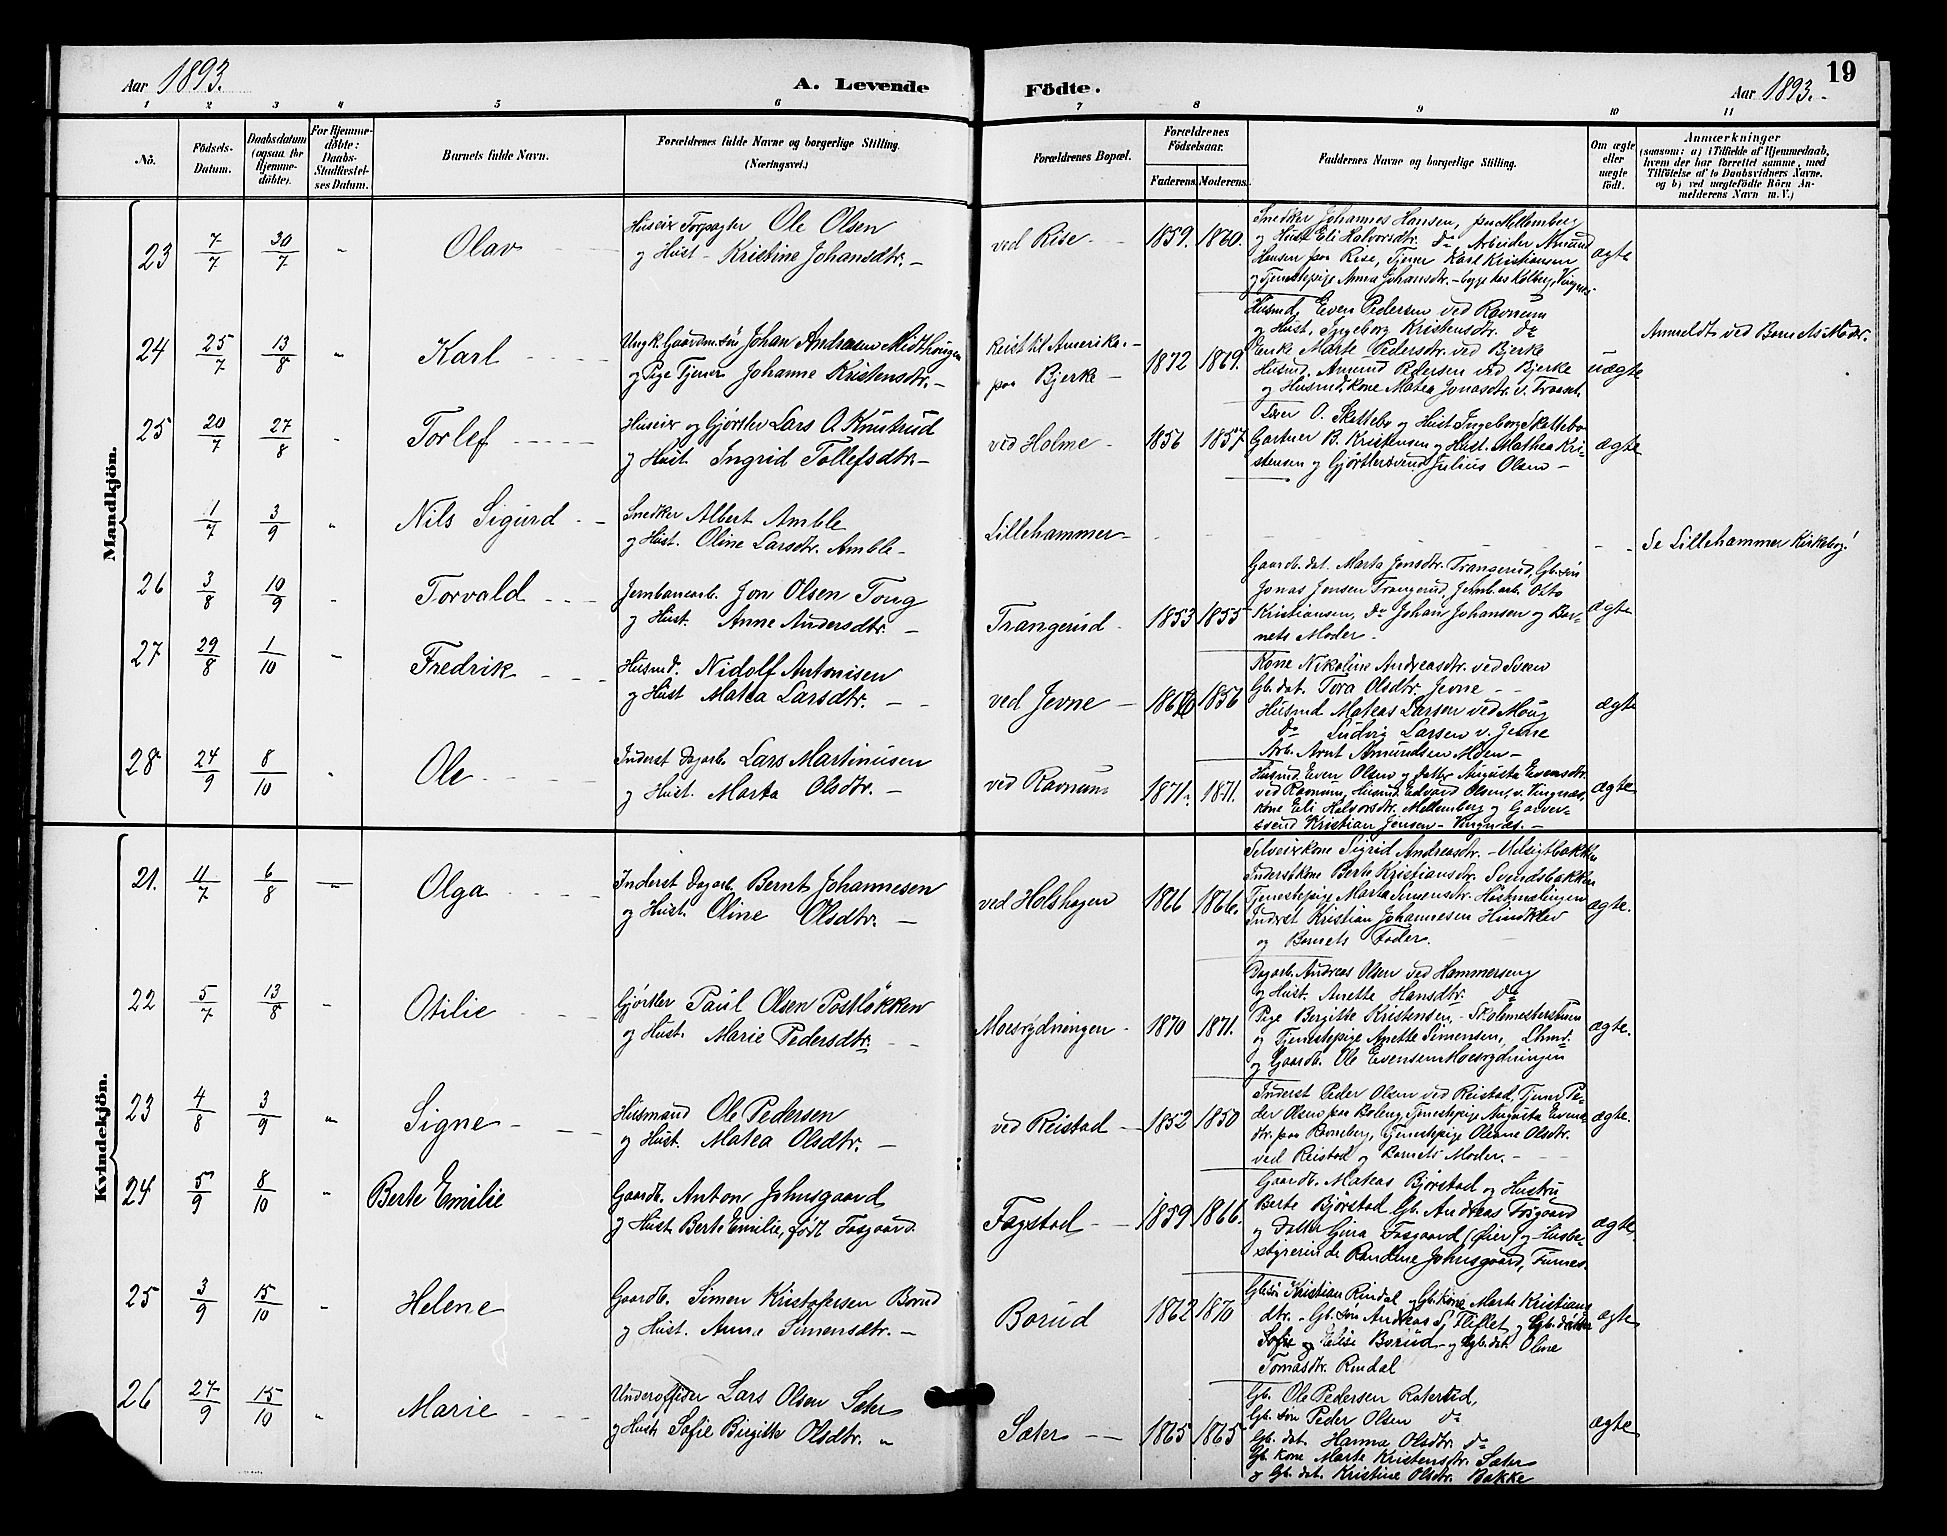 Aar 1893.
A. Levende Födte.
Aar 1893.
19
1 2 3 4 5 6 7 8 9 10 11
No.
Födsels-Datum.
Daabsdatum (ogsaa for Hjemmedöbte).
For Hjemmedöbte: Daabs-Stadfæstelses Datum.
Barnets fulde Navn.
Forældrenes fulde Navne og borgerlige Stilling. (Næringsvei.)
Forældrenes Bopæl.
Forældrenes Födselsaar.
Faderens. Moderens.
Faddernes Navne og borgerlige Stilling.
Om ægte eller uægte födt.
Anmærkninger
(saasom: a) i Tilfælde af Hjemmedaab, hvem der har forrettet samme, med Tilföielse af to Daabsvidners Navne, og b) ved uægtefödte Börn Anmelderens Navn m. V.)
Mandkjön.
23 7/7 30/7 " Olav
Huseier Torpagter Ole Olsen
og Hust - Kristine Johansdtr. -
ved Rise. - 1859. 1860.
Snedker Johannes Hansen, paa Mellemberg
og Hust Eli Halvorsdtr. Do Arbeider Amund
Hansen paa Rise, Tjener Karl Kristiansen
og Tjenestepige Anna Johansdtr. -
ægte
24 25/7 13/8 " Karl
Ungk. Gaardm. sön Johan Andreasen Midthaugen
og Pige Tjener Johanne Kristensdtr. -
Reist til Amerika. -
paa Bjerke -
1872 1869.
Husmd. Even Pedersen ved Ravnum
og Hust. Ingeborg Kristensdtr. Do
Enke Marte Pedersdtr. ved Bjerke
Husmd. Amund Pedersen ved Bjerke
og Husmd. kone Matea Jonasdtr. v.
uægte
Anmeldt ved Barnets Moder.
25 20/7 27/8 " Torlef
Huseier og Gjörtler Lars O. Knutrud
og Hust. Ingrid Tollefsdtr. -
ved Holme - 1856 1857
O. Skattebo og Hust Ingeborg Skattebo
Gartner B. Kristensen og Hust. Mathea Kri-
stensen og Gjörtlersvend Julius Olsen -
ægte
1/7 3/9 " Nils Sigurd
Snedker Albert Amble
og Hust. Oline Larsdtr. Amble -
Lillehammer -
Se Lillehammer Kirkebog!
26 3/8 10/9 " Torvald
Jernbanearb. Jon Olsen Toug
og Hust. Anne Andersdtr. -
Trangerud. 1853 1855
Gaardb. dat. Marta Jonsdtr. Trangerud, Gb. sön
Jonas Jonsen Trangerud, Jernb. arb. Otto
Kristiansen, Do Johan Johansen og Bar-
nets Moder -
ægte
27 29/8 1/10 " Fredrik
Husmd. Nidolf Antonisen
og Hust Matea Larsdtr. -
ved Jevne - 1856
Kone Nikoline Andreasdtr. ved Sveen
Gb. dat. Tora Olsdtr. Jevne - -
Husmd Mateas Larsen ved Moug
Do Ludvig Larsen v. Jevne
Arb. Arnt Amundsen Moen -
ægte
28 24/9 8/10 " Ole
Inderst Dagarb. Lars Martinusen
og Hust. Marta Olsdtr. -
ved Ravnum 1871. 1871.
Husmd Even Olsen og datter Augusta Evensdtr.
ved Ravnum, Husmd. Edvard Olsen, v. Vingnæs,
kone Eli Halvorsdtr. Mellemberg og Garver-
svend Kristian Jensen - Vingnæs. -
ægte
Kvindekjön.
21. 11/7 6/8 " Olga
Inderst Dagarb. Bernt Johannesen
og Hust. Oline Olsdtr. -
ved Holshagen 1866 1866.
Selveierkone Sigrid Andreasdtr. - Udsigtbakken
Inderstkone Berte Kristiansdtr. Svendsbakken
Tjenestepige Marta Simensdtr.
Inderst Kristian Johannesen Hindklev
og Barnets Fader.
ægte.
22 5/7 13/8 " Otilie
Gjörtler Paul Olsen Postlökken
og Hust. Marie Pedersdtr. -
Moesrydningen - 1870 1871.
Dagarb. Andreas Olsen ved Hammerseng
og Hust. Anette Hansdtr. Do
Pige Bergitte Kristensen, - Skolmesterstuen
og Tjenestepige Anette Simensen, Lhmr.
og Gaardb. Ole Evensen Moesrydningen
ægte.
23 4/8 3/9 " Signe
Husmand Ole Pedersen
og Hust. Matea Olsdtr. -
ved Reistad - 1852 1850
Inderst Peder Olsen ved Reistad, Tjener Pe-
der Olsen paa Roleng, Tjenestepige Augusta Evens-
dtr. paa Ravneberg, Tjenestepige Oleane Olsdtr.
ved Reistad og Barnets Moder. -
ægte.
24 5/9 8/10 " Berte Emilie
Gaardb. Anton Johnsgaard
og Hust. Berte Emilie, født Fosgaard.
Fagstad - 1859 1866.
Gaardb. Mateas Bjørstad og Hustru
Berte Bjørstad Gb. Andreas Fosgaard
og Datter Gina Fosgaard (Øier) og Husbe-
styrerinde Randine Johnsgaard, Furnes.
ægte,
25 3/9 15/10 " Helene
Gaardb. Simen Kristofersen Borud
og Hust. Anna Simensdtr. -
Borud 1862 1870
Gb. sön Kristian Rindal og Gb. Kone Marte Kristians
dtr. - Gb. sön Andreas S. Fliflet og Gb. datter
Sofie og Elise Borud - og Gb. dat. Oline
Tomasdtr. Rindal
ægte
26 27/9 15/10 " Marie
Underofficier Lars Olsen Sæter
og Hust. Sofie Birgitte Olsdtr. "
Sæter - - 1865 1865
Gb. Ole Pedersen Roterud,
Gb. sön Peder Olsen Do
Gb. dat. Hanna Olsdtr. Do
Gb. Kone Marte Kristensdtr. Sæter
og Gb. dat. Kristine Olsdtr. Bakke
ægte